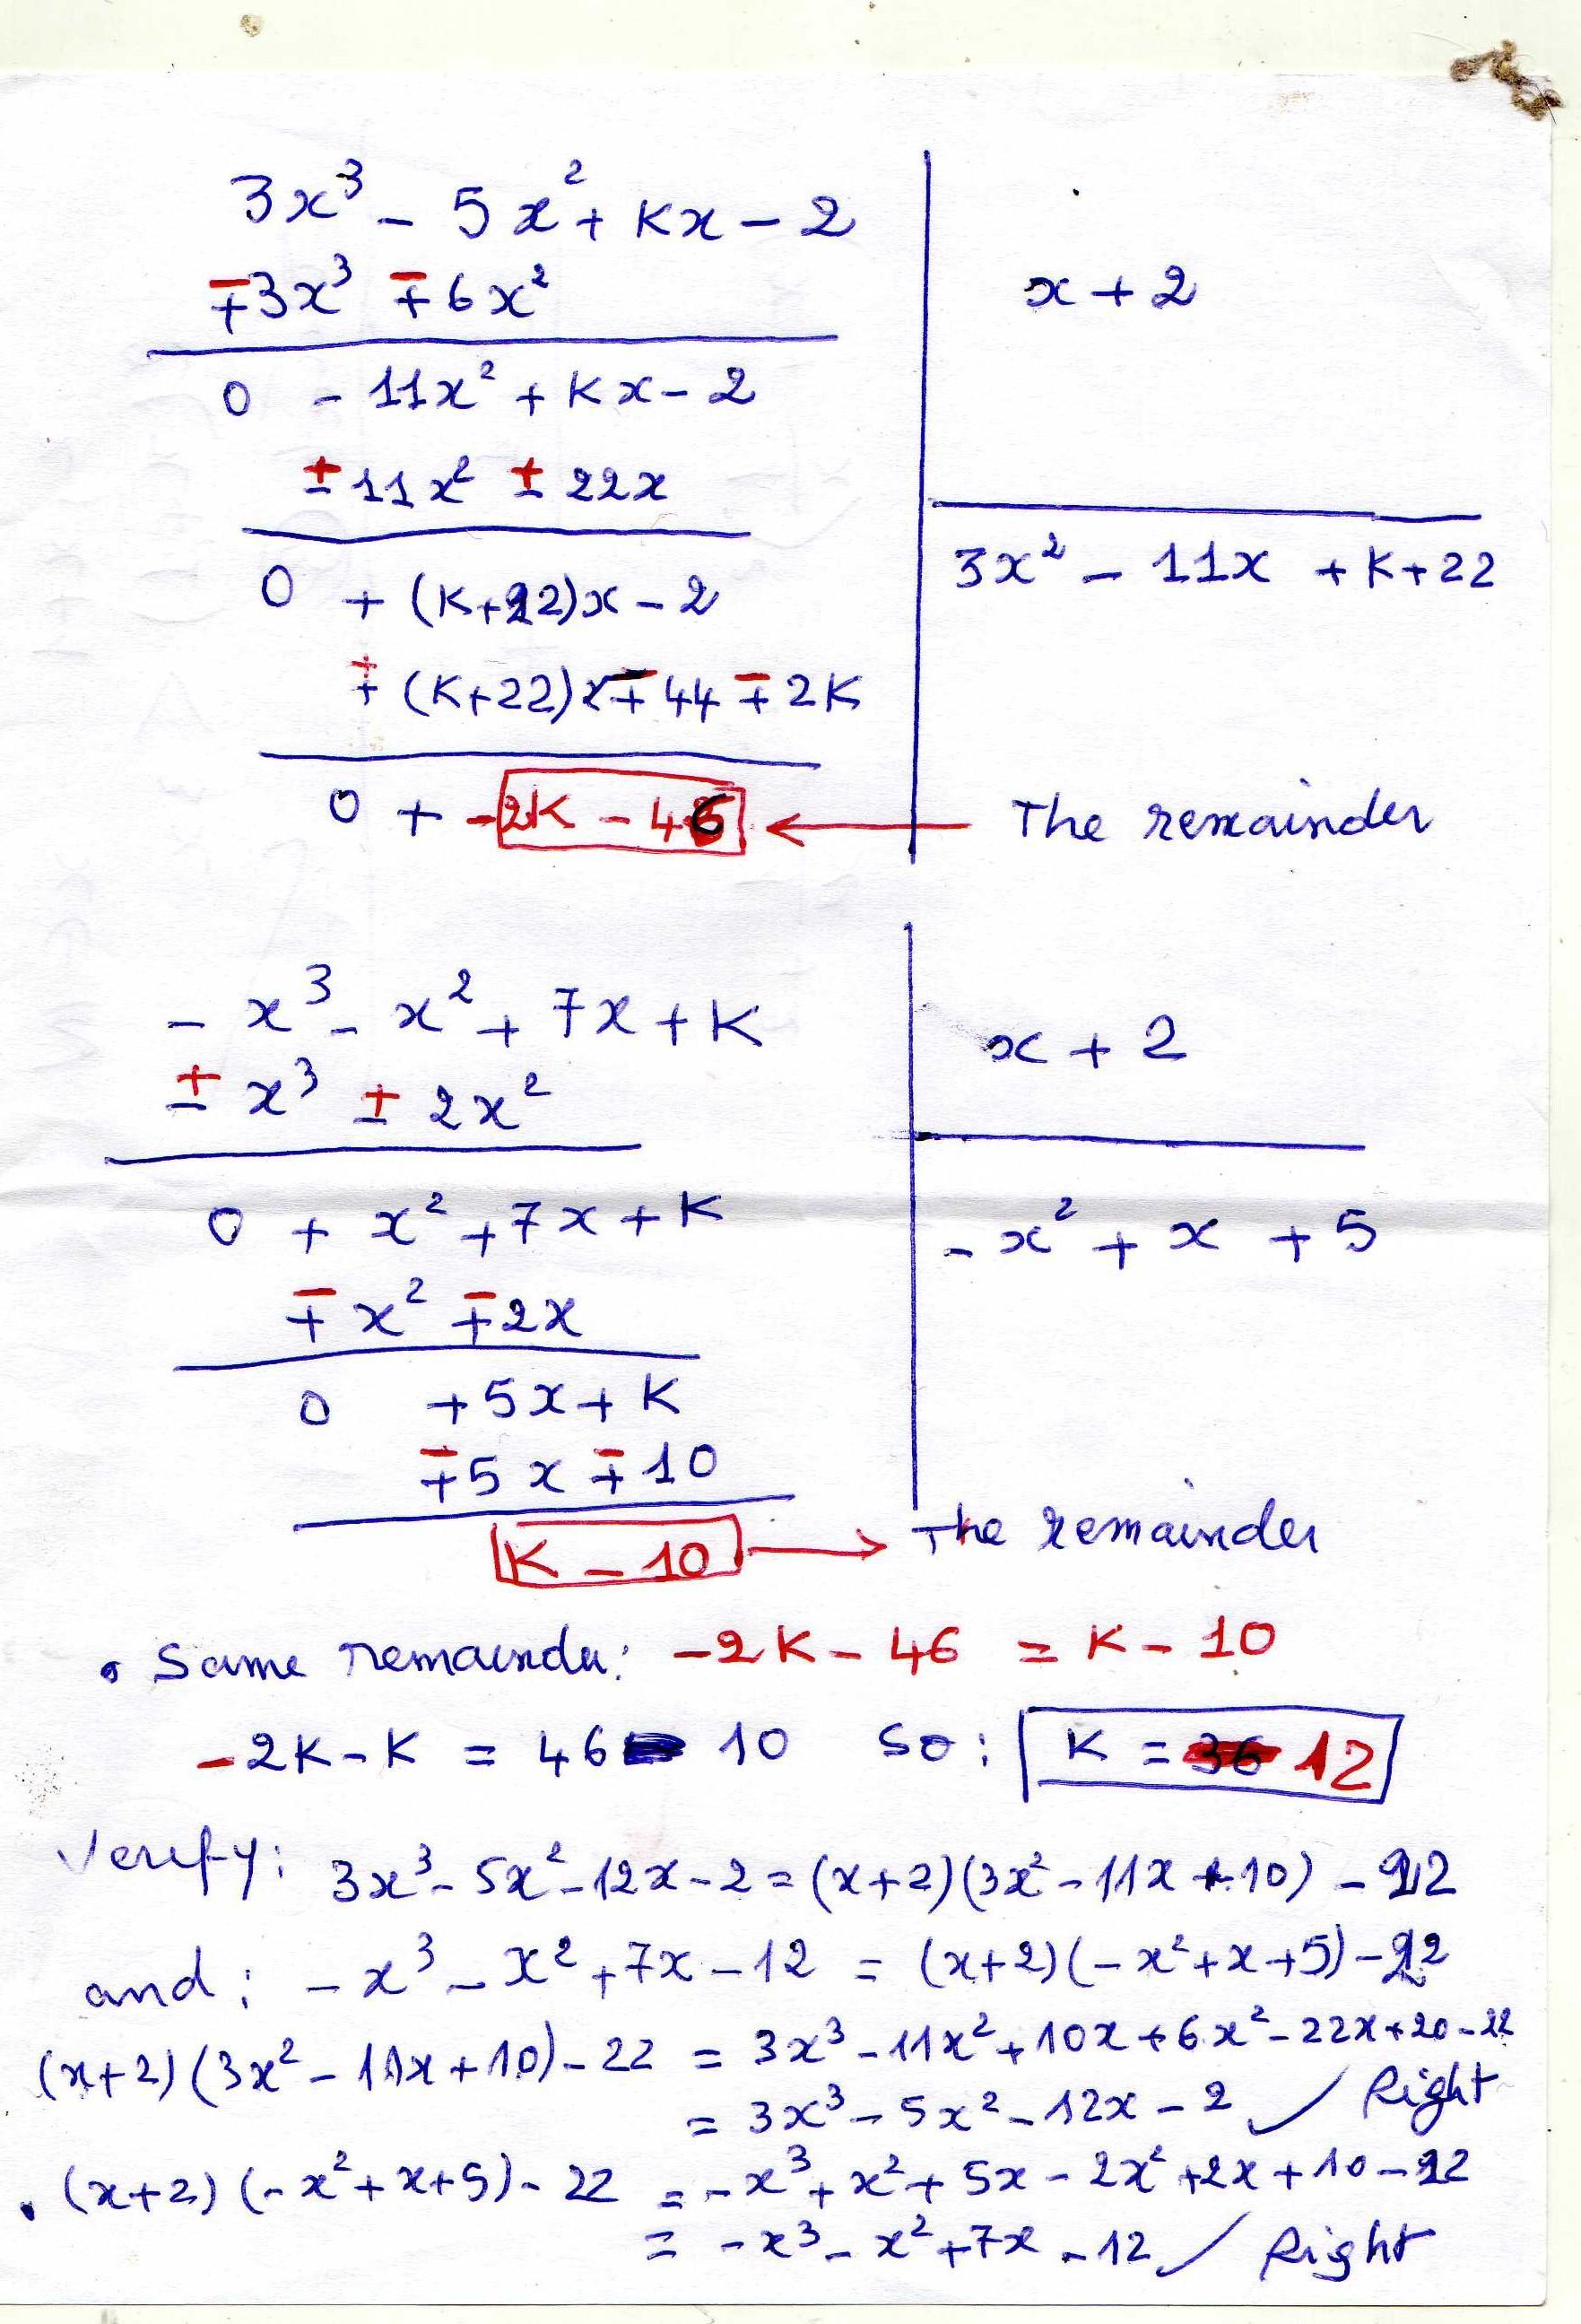 3x³ - 5x² + Kx - 2
x + 2
∓3x³ ∓ 6x²
0 - 11x² + Kx - 2
± 11x² ± 22x
3x² - 11x + K + 22
0 + (K+22)x - 2
∓ (K+22)x ∓ 44 ∓ 2K
0 + -2K - 46 ← The remainder
- x³ - x² + 7x + K
x + 2
± x³ ± 2x²
0 + x² + 7x + K
- x² + x + 5
∓ x² ∓ 2x
0 + 5x + K
∓5x ∓ 10
K - 10 → The remainder
• Same remainder: -2K - 46 = K - 10
-2K - K = 46 10 so: K = 12
Verify: 3x³ - 5x² - 12x - 2 = (x+2)(3x² - 11x + 10) - 22
and: - x³ - x² + 7x - 12 = (x+2)(- x² + x + 5) - 22
(x+2)(3x² - 11x + 10) - 22 = 3x³ - 11x² + 10x + 6x² - 22x + 20 - 22
= 3x³ - 5x² - 12x - 2 ✓ Right
• (x+2)(- x² + x + 5) - 22 = - x³ + x² + 5x - 2x² + 2x + 10 - 22
= - x³ - x² + 7x - 12 ✓ Right